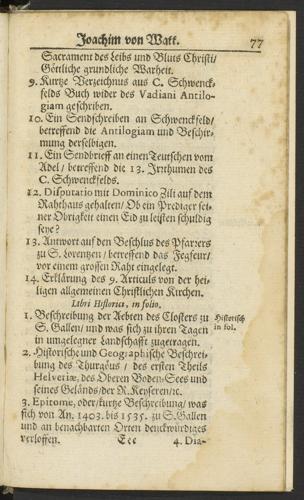 Joachim von Watt. 77
Sacrament des Leibs und Bluts Christi/
Göttliche grundliche Warheit.
9. Kurtze Verzeichnus aus C. Schwenck-
felds Buch wider des Vadiani Antilo-
giam geschriben.
10. Ein Sendschreiben an Schwenckfeld/
betreffend die Antilogiam und Beschir-
mung derselbigen.
11. Ein Sendbrieff an einen Teutschen vom
Adel/ betreffend die 13. Irrthumen des
C. Schwenckfelds.
12. Disputatio mit Dominico Zili auf dem
Rahthaus gehalten/ Ob ein Prediger sei-
ner Obrigkeit einen Eid zu leisten schuldig
seye?
13. Antwort auf den Beschlus des Pfarrers
zu S. Lorentzen/ betreffend das Fegfeur/
vor einem grossen Raht eingelegt.
14. Erklärung des 9. Articuls von der hei-
ligen allgemeinen Christlichen Kirchen.
Libri Historici, in folio.
1. Beschreibung der Aebten des Closters zu
S. Gallen/ und was sich zu ihren Tagen
in umgelegner Landschafft zugetragen.
Historisch
in fol.
2. Historische und Geographische Beschrei-
bung des Thurgöus / des ersten Theils
Helvetiæ, des Oberen Boden-Sees und
seines Geländs/ der R. Keyseren/ ꝛc.
3. Epitome, oder kurtze Beschreibung/ was
sich von An. 1403. bis 1535. zu S. Gallen
und an benachbarten Orten denckwürdiges
verloffen. Eee 4. Dia-